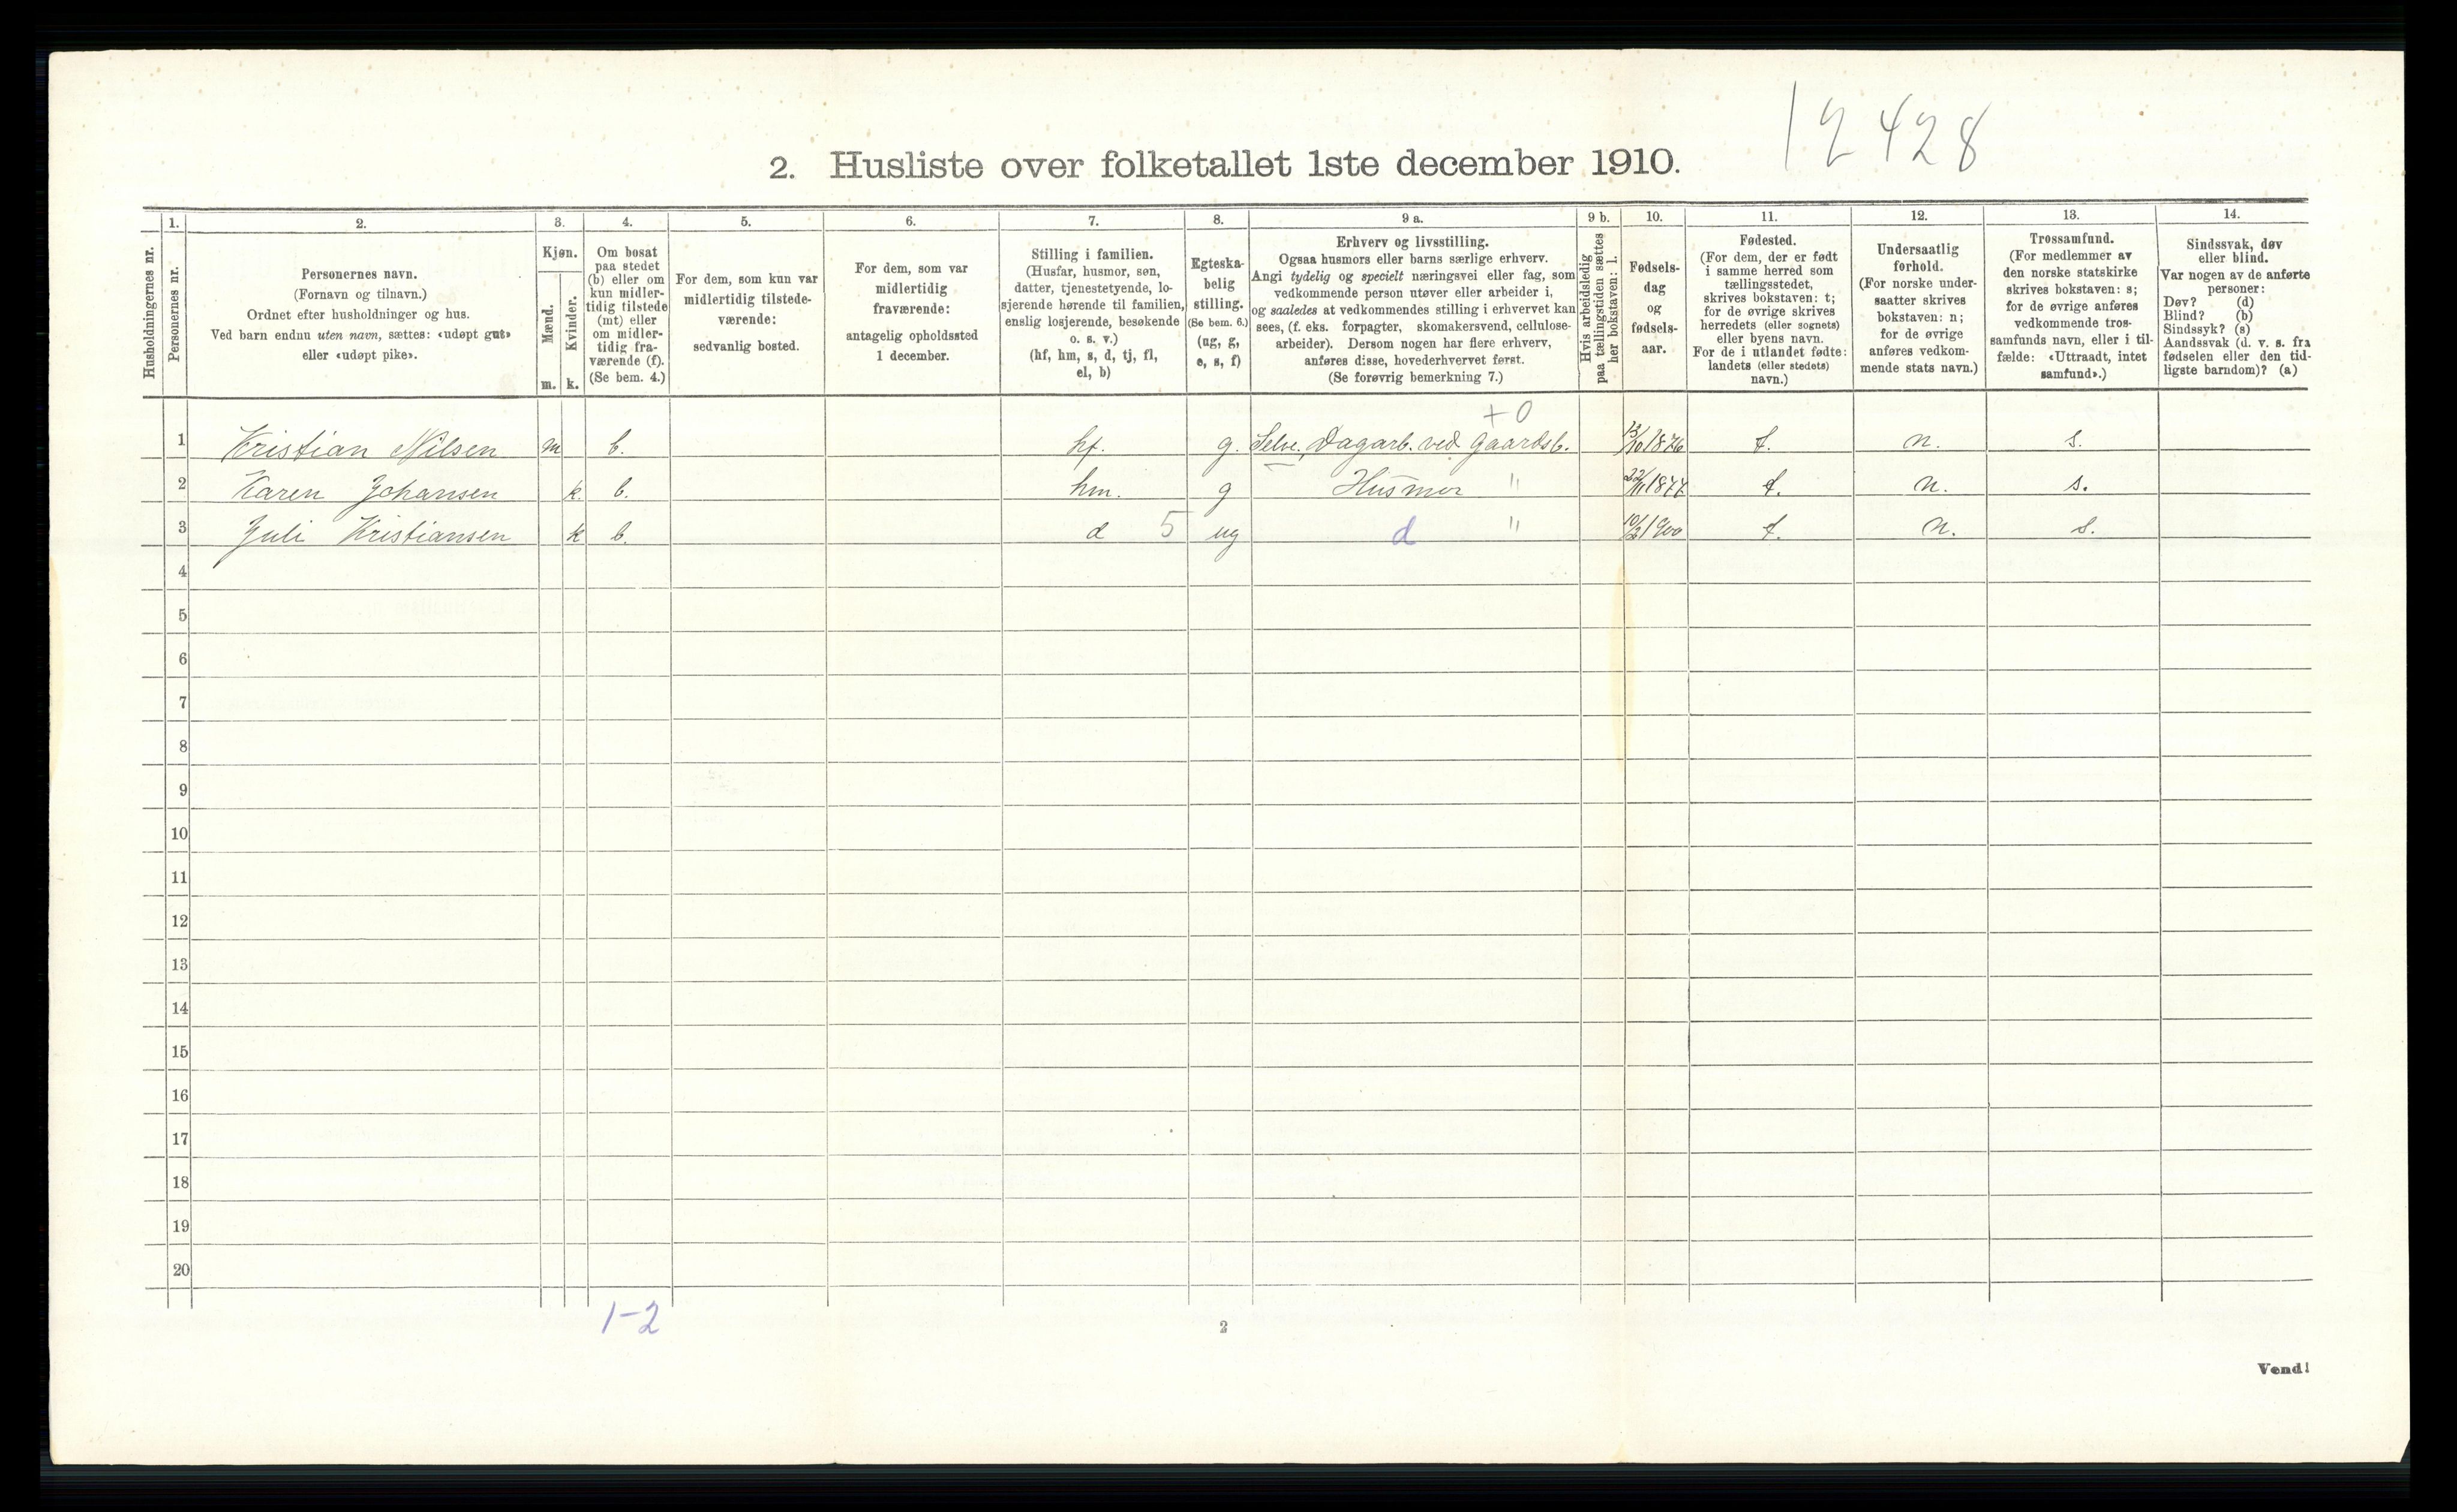 12428
2. Husliste over folketallet 1ste december 1910.
Husholdningernes nr.
1.
Personernes nr.
2.
Personernes navn.
(Fornavn og tilnavn.)
Ordnet efter husholdninger og hus.
Ved barn endnu uten navn, sættes: «udøpt gut»
eller «udøpt pike».
3.
Kjøn.
Mænd.
m.
Kvinder.
k.
4.
Om bosat
paa stedet
(b) eller om
kun midler-
tidig tilstede
(mt) eller
om midler-
tidig fra-
værende (f).
(Se bem. 4.)
5.
For dem, som kun var
midlertidig tilstede-
værende:
sedvanlig bosted.
6.
For dem, som var
midlertidig
fraværende:
antagelig opholdssted
1 december.
7.
Stilling i familien.
(Husfar, husmor, søn,
datter, tjenestetyende, lo-
sjerende hørende til familien,
enslig losjerende, besøkende
o. s. v.)
(hf, hm, s, d, tj, fl,
el, b)
8.
Egteska-
belig
stilling.
(Se bem. 6.)
(ug, g,
e, s, f)
9 a.
Erhverv og livsstilling.
Ogsaa husmors eller barns særlige erhverv.
Angi tydelig og specielt næringsvei eller fag, som
vedkommende person utøver eller arbeider i,
og saaledes at vedkommendes stilling i erhvervet kan
sees, (f. eks. forpagter, skomakersvend, cellulose-
arbeider). Dersom nogen har flere erhverv,
anføres disse, hovederhvervet først.
(Se forøvrig bemerkning 7.)
9 b.
Hvis arbeidsledig
paa tællingstiden sættes
her bokstaven: l.
10.
Fødsels-
dag
og
fødsels-
aar.
11.
Fødested.
(For dem, der er født
i samme herred som
tællingsstedet,
skrives bokstaven: t;
for de øvrige skrives
herredets (eller sognets)
eller byens navn.
For de i utlandet fødte:
landets (eller stedets)
navn.)
12.
Undersaatlig
forhold.
(For norske under-
saatter skrives
bokstaven: n;
for de øvrige
anføres vedkom-
mende stats navn.)
13.
Trossamfund.
(For medlemmer av
den norske statskirke
skrives bokstaven: s;
for de øvrige anføres
vedkommende tros-
samfunds navn, eller i til-
fælde: «Uttraadt, intet
samfund».)
14.
Sindssvak, døv
eller blind.
Var nogen av de anførte
personer:
Døv? (d)
Blind? (b)
Sindssyk? (s)
Aandssvak (d. v. s. fra
fødselen eller den tid-
ligste barndom)? (a)
+0
1 Kristian Nilsen m b. hf. g. Selve. Dagarb. ved Gaardsb. 13/10 1876 t. n. s.
2 Karen Johansen k. b. hm. g Husmor " 22/11 1877 t. n. s.
3 Juli Kristiansen k b. d 5 ug d " 10/2 1900 t. n. s.
4
5
6
7
8
9
10
11
12
13
14
15
16
17
18
19
20
1-2
2
Vend!